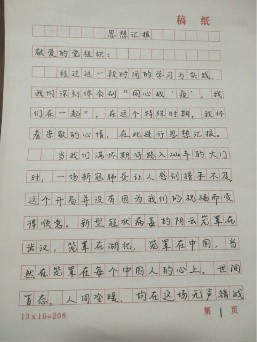 稿纸
思想汇报
敬爱的党组织：
经过这一段时间的学习与实践，
我们深刻体会到"同心战'疫'，我
们在一起"，在这个特殊时期，我怀
着崇敬的心情，在此进行思想汇报。
当我们满怀期待踏入2020年的大门
时，一场新冠肺炎让人感到措手不及
这个开局并没有因为我们的祝福而变
得惬意。新型冠状病毒的阴云笼罩在
武汉，笼罩在湖北，笼罩在中国，当
然在笼罩在每个中国人的心上。世间
百态，人间冷暖，均在这场无声硝战
13×16=208
第1页